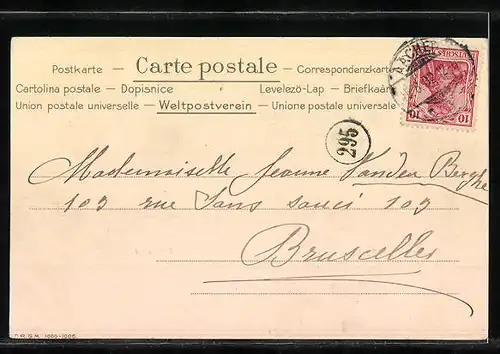 Postkarte — Carte postale — Correspondenzkart
Cartolina postale — Dopisnice Levelezö-Lap — Briefkaart
Union postale universelle — Weltpostverein — Unione postale universale
10 10
295
Mademoiselle Jeanne Vanden Berghe
103 rue Sans souci 103
Bruxelles
D.R.G.M.